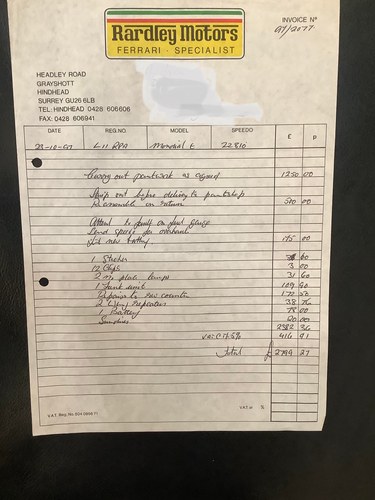 Rardley Motors
FERRARI - SPECIALIST
INVOICE Nº
HEADLEY ROAD
GRAYSHOTT
HINDHEAD
SURREY GU26 6LB
TEL: HINDHEAD 0428 606606
FAX: 0428 606941
DATE REG.NO MODEL SPEEDO £ P
Mondial t 22810
Carry out paintwork as agreed 1250 00
Strip out before delivery to paintshop
Re assemble on return 500 00
Attend to fault on fuel gauge
Send speedo for overhaul
fit new battery 175 00
1
12 Clips 3 00
2 No plate lamps 31 60
1 Tank unit 109 90
Repairs to rev counter
2 Wing Repeaters 38 76
1 Battery 75 00
Sundries 20 00
2382 36
VAT @ 17.5% 416 91
Total £ 2799 27
V.A.T. Reg. No.
V.A.T. at %